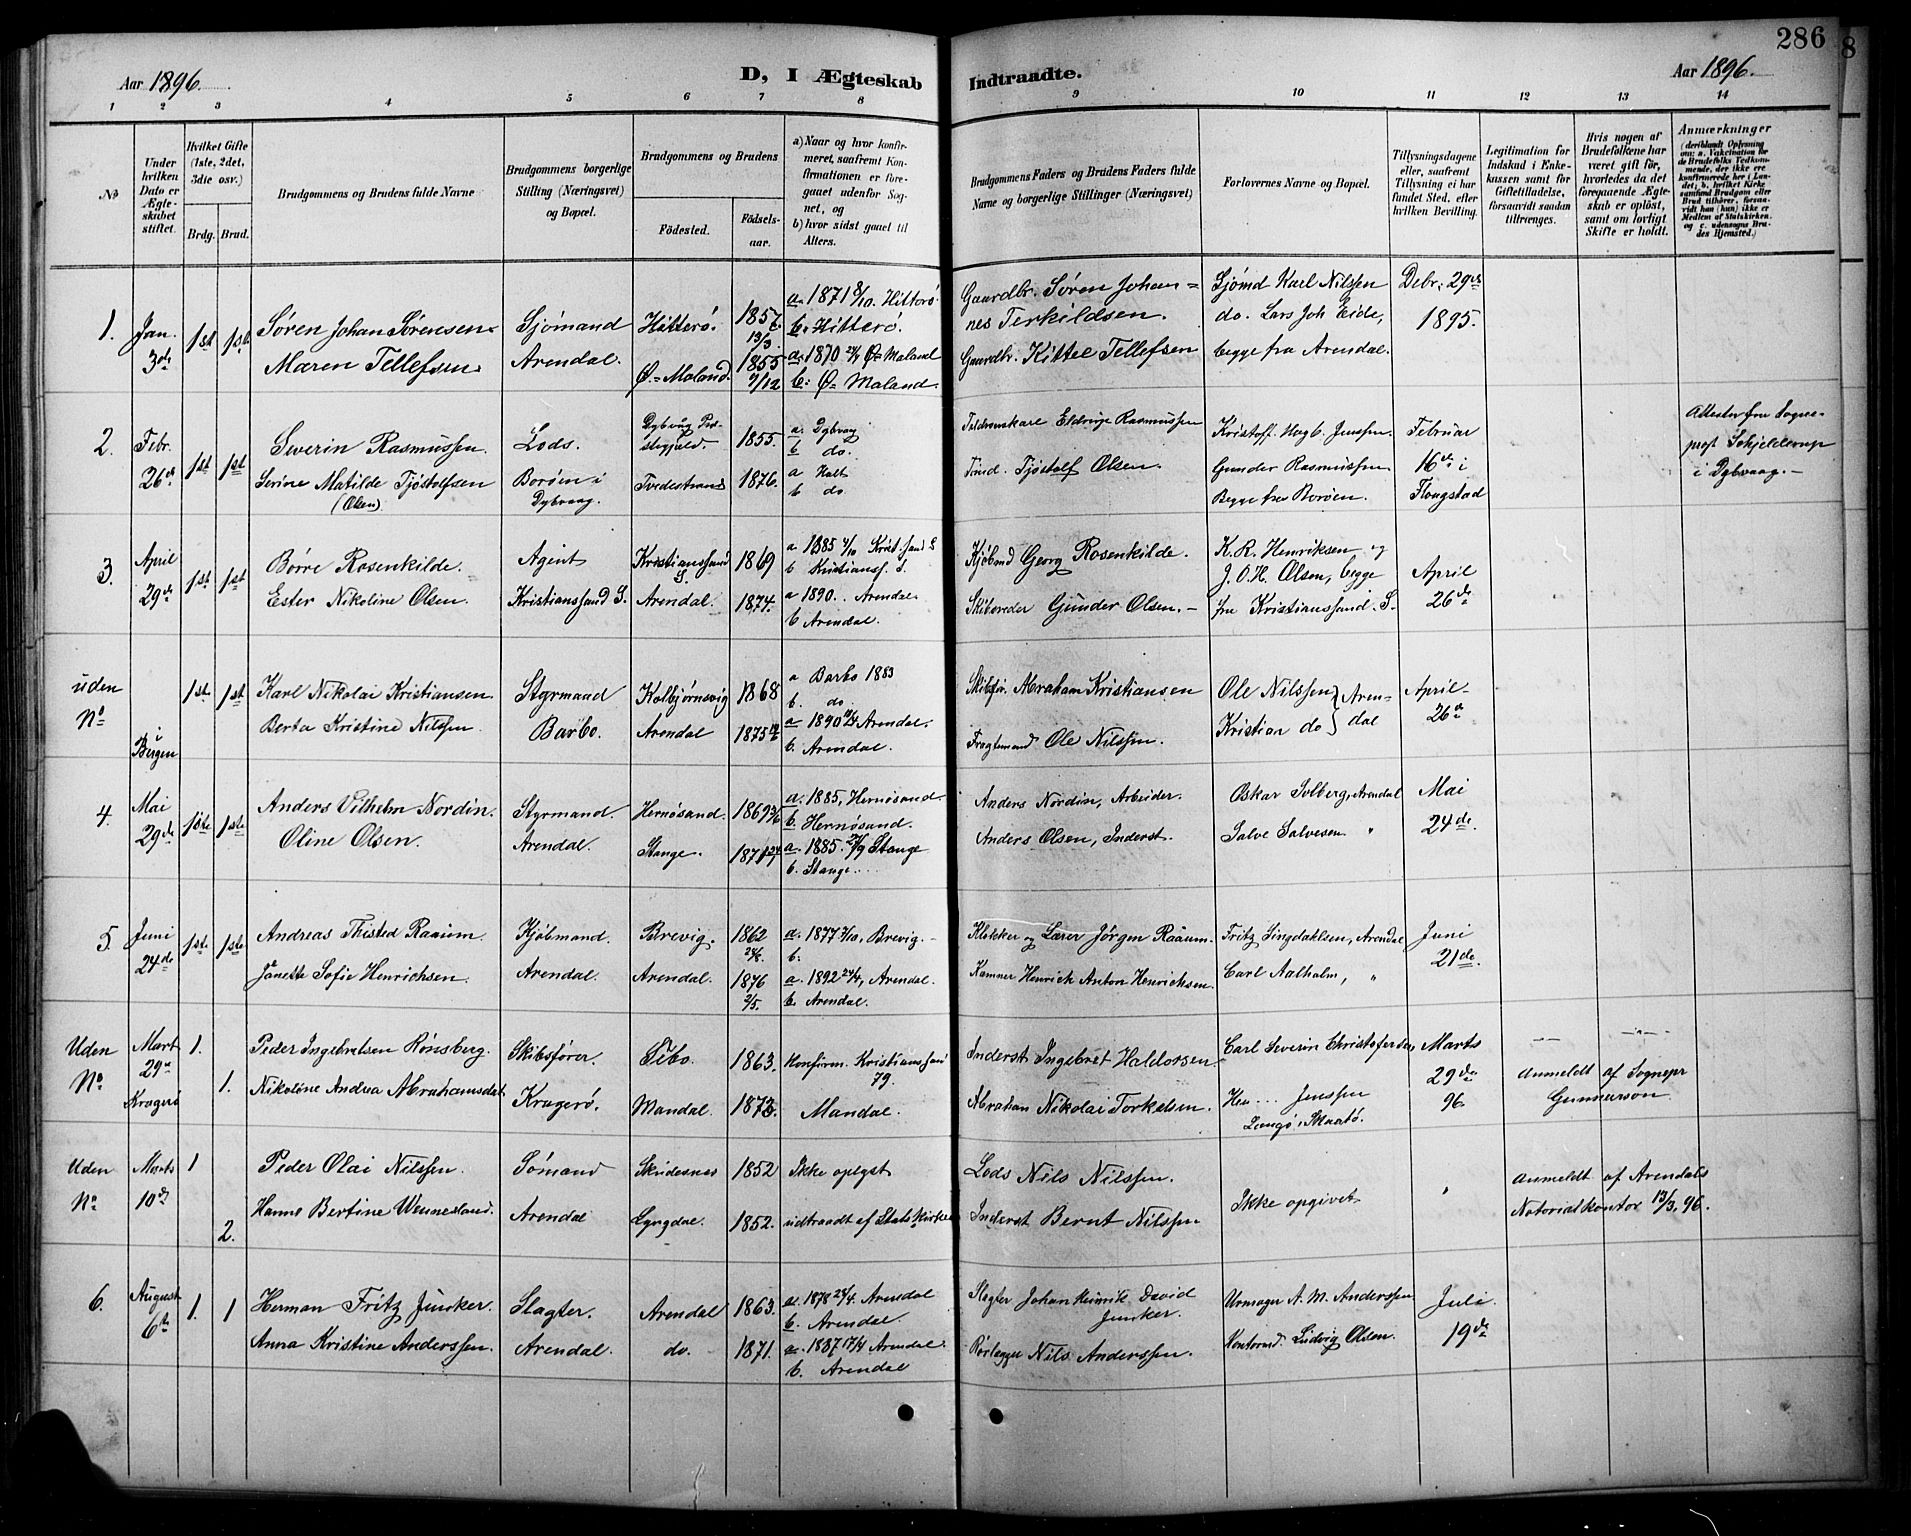 286
8
Aar 1896.
D, I Ægteskab Indtraadte.
Aar 1896.
1 2 3 4 5 6 7 8 9 10 11 12 13 14
No
Under
hvilken
Dato er
Ægte-
skabet
stiftet.
Hvilket Gifte
(1ste, 2det,
3die osv.)
Brdg. Brud.
Brudgommens og Brudens fulde Navne
Brudgommens borgerlige
Stilling (Næringsvei)
og Bopæl.
Brudgommens og Brudens
Fødested.
Fødsels-
aar.
a) Naar og hvor konfir-
meret, saafremt Kon-
firmationen er fore-
gaaet udenfor Sog-
net, og
b) hvor sidst gaaet til
Alters.
Brudgommens Faders og Brudens Faders fulde
Navne og borgerlige Stillinger (Næringsvei)
Forlovernes Navne og Bopæl.
Tillysningsdagene
eller, saafremt
Tillysning ei har
fundet Sted, efter
hvilken Bevilling.
Legitimation for
Indskud i Enke-
kassen samt for
Giftetilladelse,
forsaavidt saadan
tiltrænges.
Hvis nogen af
Brudefolkene har
været gift før,
hvorledes da det
foregaaende Ægte-
skab er opløst,
samt om lovligt
Skifte er holdt.
Anmærkninger
(deriblandt Oplysning
om: a. Vakcination for
de Brudefolks Vedkom-
mende, der ikke ere
konfirmerede her i Lan-
det; b. hvilket Kirke-
samfund Brudgom eller
Brud tilhører, forsaa-
vidt han (hun) ikke er
Medlem af Statskirken
og c. udensogns Bru-
des Hjemsted.)
1. Jan. 3de 1st 1st
Søren Johan Sørensen
Maren Tellefsen
Sjømand
Arendal.
Hitterø.
Ø. Moland.
1857 13/3.
1855 7/12
a. 1871 8/10. Hitterø
b. Hitterø.
a. 1870 Ø. Moland
b: Ø. Moland.
Gaardbr. Søren Johan=
nes Terkildsen.
Gaardbr. Kittel Tellefsen
Sjømd Karl Nilssen
do. Lars Joh Eide,
begge fra Arendal.
Debr. 29de
1895.
2. Febr. 26de 1st 1st
Severin Rasmussen.
Serine Matilde Tjøstolfsen
(Olsen)
Lods.
Borøen i
Dybvaag.
Tvedestrand
1855.
1876.
a. Dybvaag
b do.
a Holt
b do
Eldrup Rasmussen
Tjøstolf Olsen.
Kristoff. Jenssen.
Gunder Rasmussen
Begge fra Borøen.
Februar
16de i
Flougstad
Attester fra Sogne-
prest Schjelderup
i Dybvaag.-
3. April 29de 1st 1st
Børre Rosenkilde.
Ester Nikoline Olsen.
Agent
Kristianssand S.
Kristianssand
S.
Arendal.
1869
1874.
a 1885 4/10 Krist.sand S
b Kristianss. S.
a 1890. Arendal.
b Arendal.
Kjøbmd Georg Rosenkilde.
Skibsreder Gunder Olsen.-
K. R. Henriksen og
J. O. H. Olsen, begge
fra Kristianssand. S-
April
26de
uden
No
i Bergen
1st. 1st
Karl Nikolai Kristiansen
Berta Kristine Nilssen
Styrmand
Barbo.
Kolbjørnsvig
Arendal
1868
1875
a Barbo 1883
b. do
a 1890 Arendal.
b. Arendal.
Skibsfør. Abraham Kristiansen
Fragtemand Ole Nilssen.
Ole Nilssen
Kristian do
Aren-
dal
April-
26de
4. Mai 29de 1ste 1ste
Anders Vilhelm Nordin.
Oline Olsen.
Styrmand.
Arendal.
Hernøsand.
Stange.
1869
1871
a. 1885, Hernøsand.
b. Hernøsand.
a. 1885. Stange
b. Stange.
Anders Nordin, Arbeider.
Anders Olsen, Inderst.
Oskar Solberg, Arendal
Salve Salvesen "
Mai
24de.
5. Juni 24de 1ste 1ste
Andreas Thisted Raaum.
Janette Sofie Henrichsen.
Kjøbmand.
Arendal.
Brevig.
Arendal.
1862
1876
2/5.
a. 1877 7/10, Brevig.-
b:
a. 1892 24/4, Arendal.
b. Arendal.
Klokker og Lærer Jørgen Raaum.
Kamner Henrich Anton Henrichsen.
Fritz Lingdahlsen, Arendal
Carl Aalholm, "
Juni
21de.
Uden
No
Mart
29de
Kragerø
1. 1.
Peder Ingebretsen Rønsberg.
Nikoline Andrea Abrahamsdat
Skibsfører.
Kragerø.
Mandal.
1863.
1873.
Konfirm. Kristianssand
79.
Mandal.
Inderst Ingebret Haldorsen.
Abraham Nikolai Torkelsen.
Carl Severin Christofersen
Jenssen
Langø i Skaatø.
Marts
29de
96.
Anmeldt af Sognepr
Gunnarson.
Uden
No
Marts
10de
1 2.
Peder Olai Nilssen.
Hanne Bertine Wennesland.
Sømand
Arendal
Skudesnes
Lyngdal.
1852
1852.
Ikke oplyst
udtraadt af Statskirken
Lods Nils Nilssen.
Inderst Bernt Nilssen
Ikke opgivet
"
Anmeldt af Arendals
Notorialkontor 13/3, 96.
6. August 6te 1. 1
Herman Fritz Juncker.
Anna Kristine Anderssen.
Slagter.
Arendal.
Arendal
do.
1863.
1871.
a. 1878 24/4. Arendal
b. Arendal.
a. 1887 17/4 Arendal.
b. Arendal
Slagter Johan Heinrik David
Juncker.
Rørlægger Nils Anderssen.
Urmager A. M. Anderssen
Kontormd. Ludvig Olsen.
Juli.
19de